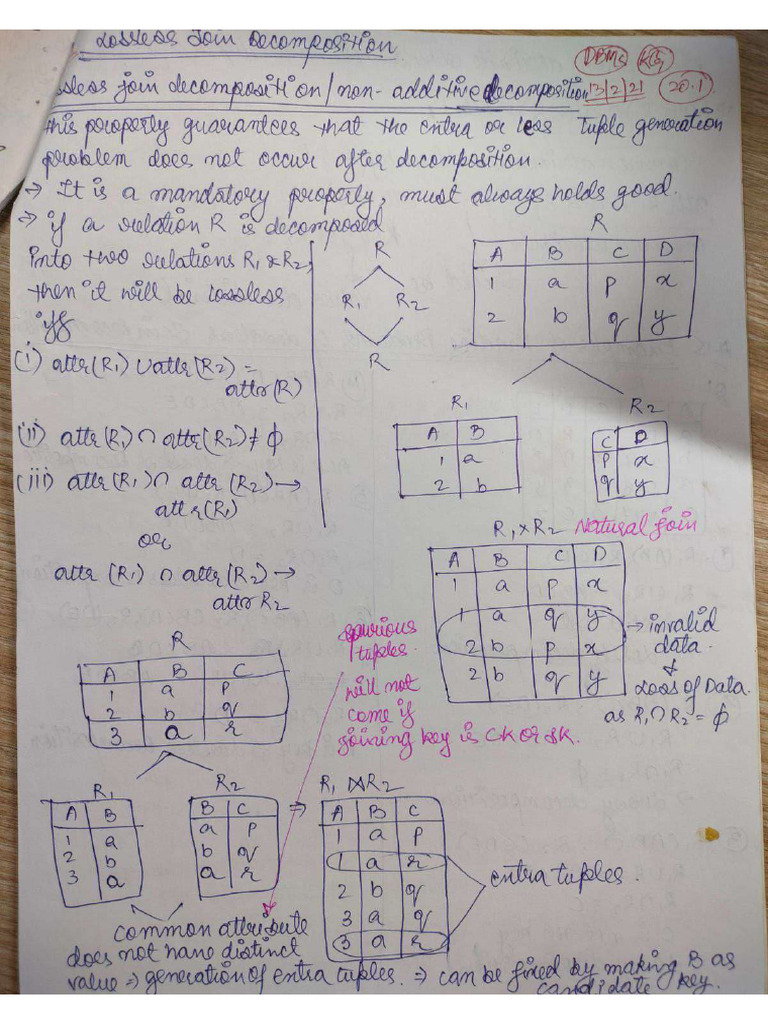 Lossless Join Decomposition
DBMS KG
13/2/21 20.1
ssless join decomposition/non-additive decomposition
this property guarantees that the extra or less tuple generation
problem does not occur after decomposition.
→ It is a mandatory property, must always holds good.
→ if a relation R is decomposed
into two relations R1 & R2,
then it will be lossless
iff
(i) attr(R1) ∪ attr(R2) =
attr(R)
(ii) attr(R1) ∩ attr(R2) ≠ ϕ
(iii) attr(R1) ∩ attr(R2) →
attr(R1)
or
attr(R1) ∩ attr(R2) →
attr R2
R
R1 R2
R
R
A B C D
1 a p x
2 b q y
R1
A B
1 a
2 b
R2
C D
p x
q y
R1 × R2 Natural join
A B C D
1 a p x
1 a q y
2 b p x
2 b q y
→ invalid
data
&
Loss of Data.
as R1 ∩ R2 = ϕ
spurious
tuples.
will not
come if
joining key is CK or SK.
R
A B C
1 a p
2 b q
3 a r
R1
A B
1 a
2 b
3 a
R2
B C
a p
b q
a r
⇒
R1 ⋈ R2
A B C
1 a p
1 a r
2 b q
3 a q
3 a r
extra tuples.
common attribute
does not have distinct
value ⇒ generation of extra tuples. ⇒ can be fixed by making B as
candidate key.